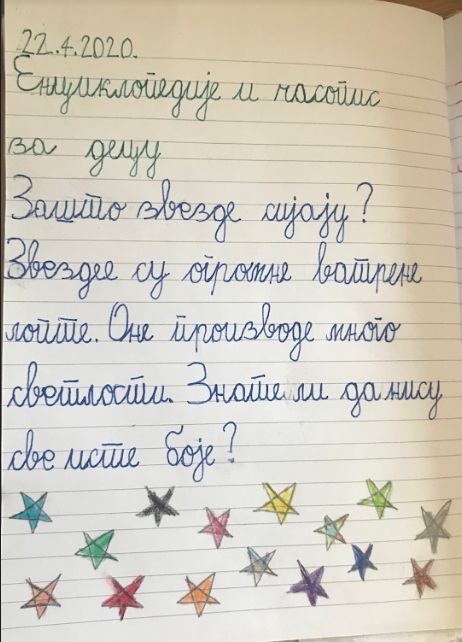 22.4.2020.
Енциклопедије и часопис
за децу
Зашто звезде сијају?
Звездее су огромне ватрене
лопте. Оне производе много
светлости. Знате ли да нису
све исте боје?